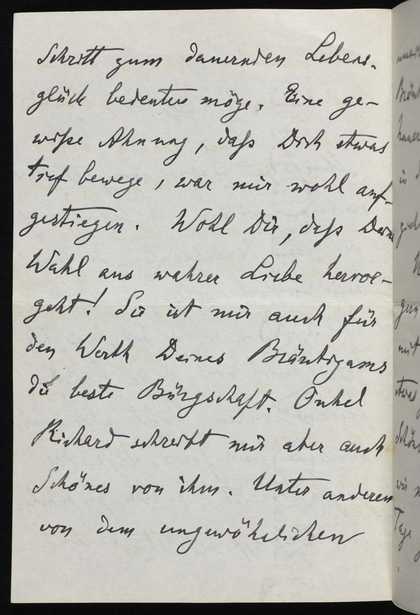 Schritt zum dauernden Lebens-
glück bedeuten möge. Eine ge-
wiße Ahnung, daß Dich etwas
tief bewege, war mir wohl auf-
gestiegen. Wohl Dir, daß Deine
Wahl aus wahrer Liebe hervor-
geht! Sie ist mir auch für
den Werth Deines Bräutigams
die beste Bürgschaft. Onkel
Richard schreibt mir aber auch
Schönes von ihm. Unter anderem
von dem ungewöhnlichen